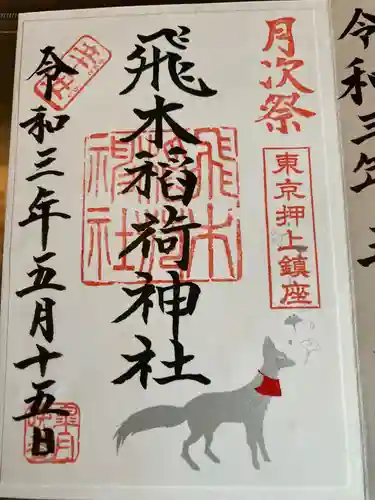 月次祭
東京押上鎮座
飛木稲荷神社
飛木稲荷神社
令和三年五月十五日
皐月
令和三年